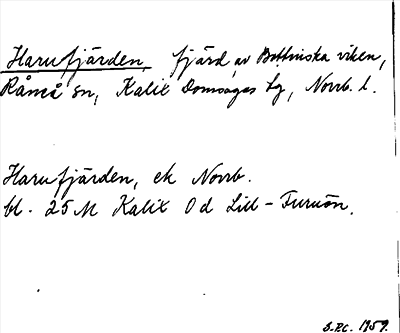 Harufjärden, fjärd av Bottniska viken,
Råneå sn, Kalix Domsagas tg, Norrb. l.
Harufjärden, ek Norrb.
bl. 25 M Kalix Od Lill-Furuön.
S.P.C. 1959.